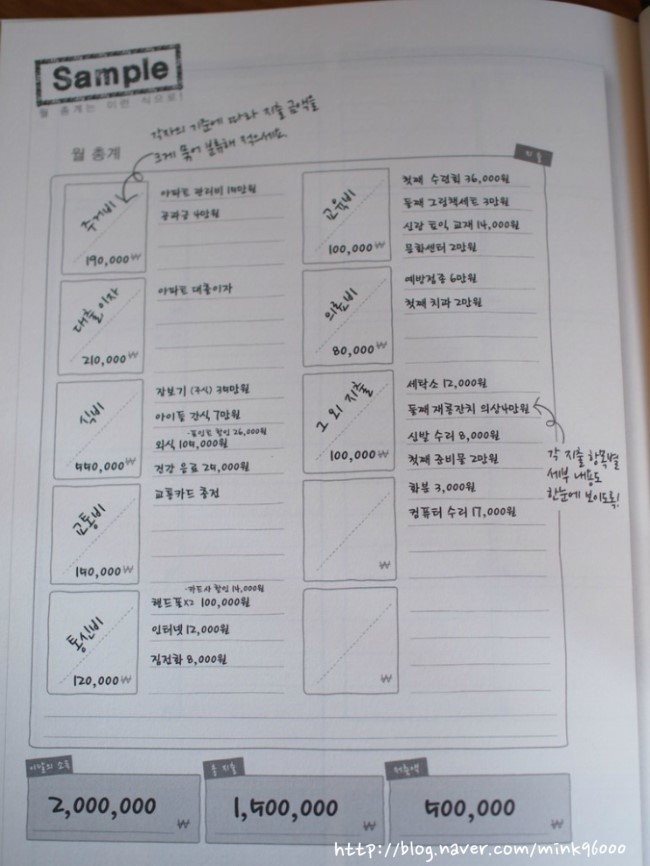 Sample
월 총계는 이런 식으로!
각자의 기준에 따라 지출 금액을
크게 묶어 분류해 적으세요
월 총계
지출
주거비
190,000₩
아파트 관리비 15만원
공과금 4만원
대출이자
210,000₩
아파트 대출이자
식비
550,000₩
장보기 (주식) 35만원
아이들 간식 7만원
-포인트 할인 26,000원
외식 105,000원
건강 음료 25,000원
교통비
150,000₩
교통카드 충전
통신비
120,000₩
-카드사 할인 14,000원
핸드폰x2 100,000원
인터넷 12,000원
집전화 8,000원
교육비
100,000₩
첫째 수련회 36,000원
둘째 그림책세트 3만원
신랑 토익 교재 14,000원
문화센터 2만원
의료비
80,000₩
예방접종 6만원
첫째 치과 2만원
그 외 지출
100,000₩
세탁소 12,000원
둘째 재롱잔치 의상4만원
신발 수리 8,000원
첫째 준비물 2만원
화분 3,000원
컴퓨터 수리 17,000원
₩
₩
각 지출 항목별
세부 내용도
한눈에 보이도록!
이달의 소득
2,000,000
₩
총 지출
1,500,000
₩
저축액
500,000
₩
http://blog.naver.com/mink96000